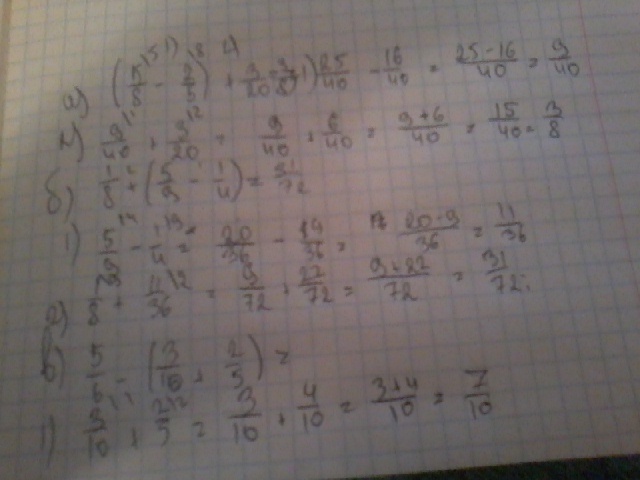 а) (5/8 - 2/5) + 3/20 = 3/8 1) 25/40 - 16/40 = 25-16/40 = 9/40
2) 9/40 + 3/20 = 9/40 + 6/40 = 9+6/40 = 15/40 = 3/8
б) 1/8 + (5/9 - 1/4) = 31/72
1) 5/9 - 1/4 = 20/36 - = 20-9/36 = 11/36
2) 1/8 + 11/36 = 9/72 + 22/72 = 9+22/72 = 31/72.
в) 5/6 - (3/10 + 2/5) =
1) 3/10 + 2/5 = 3/10 + 4/10 = 3+4/10 = 7/10